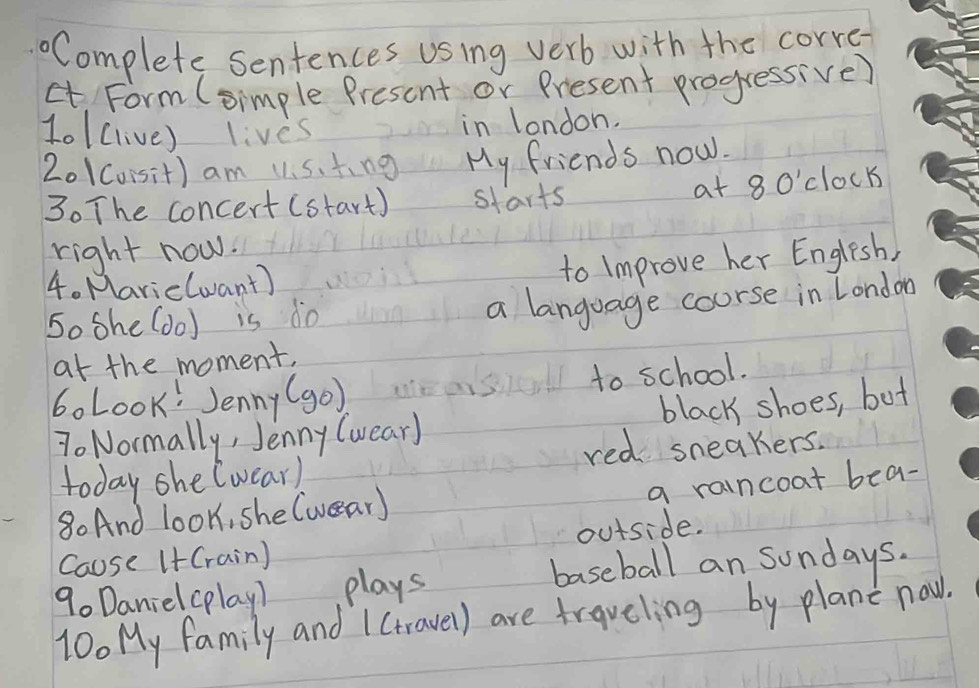 Complete sentences using verb with the corre-
ct Form (simple Present or Present progressive)
1. I (live) lives in london.
2. I (visit) am visiting My friends now.
3. The concert (start) starts at 8 O'clock
right now.
4. Marie (want) to Improve her English.
5. She (do) is do a language course in London
at the moment.
6. Look! Jenny (go) to school.
7. Normally, Jenny (wear) black shoes, but
today she (wear) red sneakers.
8. And look, she (wear) a raincoat bea-
cause It (rain) outside.
9. Daniel (play) plays baseball an Sundays.
10. My family and I (travel) are traveling by plane now.